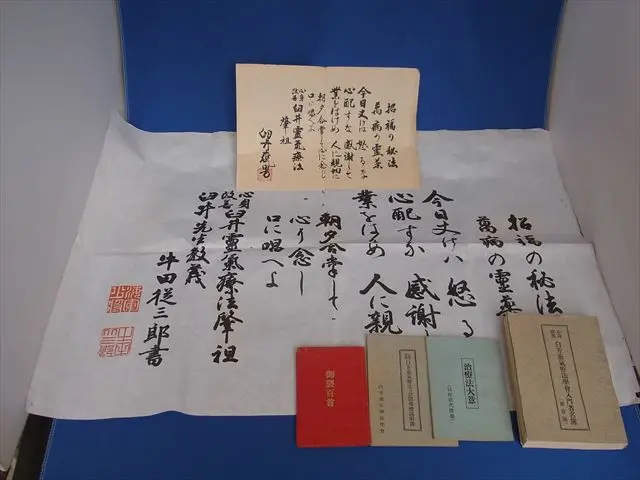 招福の秘法
萬病の靈薬
今日丈けは 怒るな
心配すな 感謝して
業をはげめ 人に親切に
朝夕合掌して心に念じ
口に唱へよ
心身改善 臼井靈氣療法
肇祖
臼井甕男
招福の秘法
萬病の靈薬
今日丈けハ 怒る
心配すな 感謝
業をはけめ 人に親
朝夕合掌して
心に念し
口に唱へよ
心身改善 臼井靈氣療法肇祖
臼井先生教義
牛田従三郎書
百首
治療法大意
臼井靈氣療法學會入門者名簿